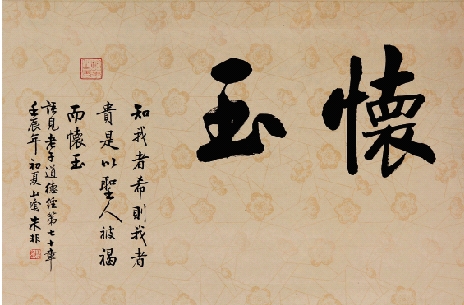 懐玉
知我者希則我者
貴是以聖人被褐
而懷玉
語見老子道德經第七十章
壬辰年初夏山窗朱非